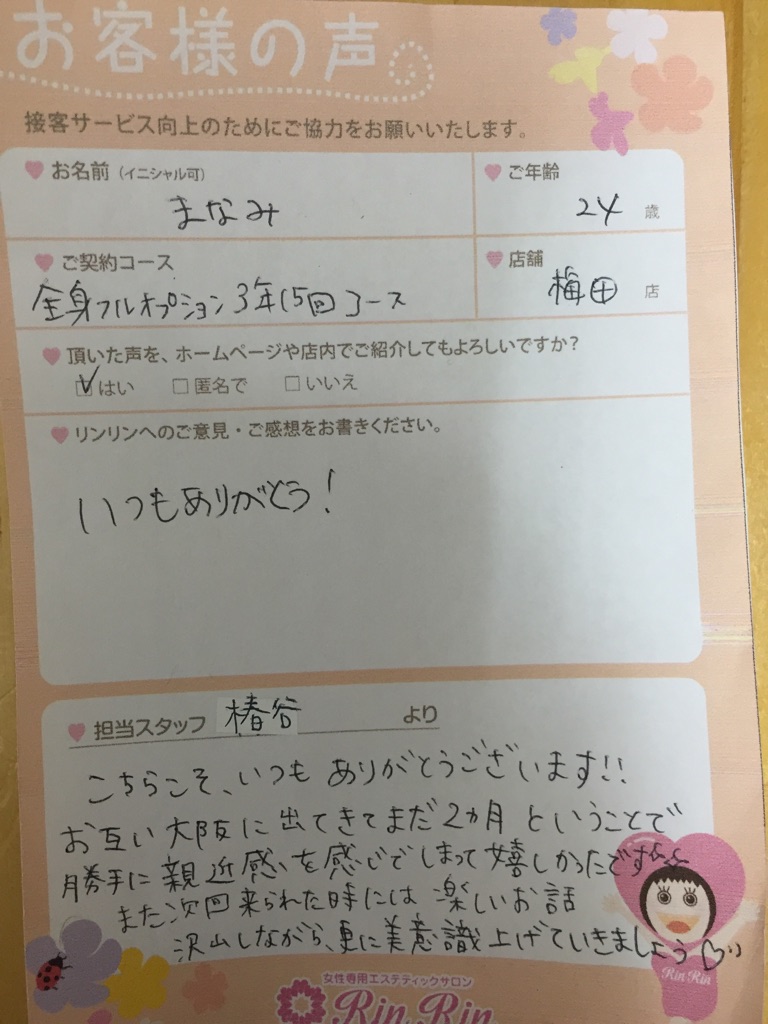 お客様の声
接客サービス向上のためにご協力をお願いいたします。
お名前（イニシャル可）
まなみ
ご年齢
24 歳
ご契約コース
全身フルオプション3年15回コース
店舗
梅田 店
頂いた声を、ホームページや店内でご紹介してもよろしいですか？
はい 匿名で いいえ
リンリンへのご意見・ご感想をお書きください。
いつもありがとう！
担当スタッフ 椿谷 より
こちらこそ、いつも ありがとうございます!!
お互い大阪に出てきてまだ2ヵ月ということで
勝手に親近感を感じてしまって嬉しかったです
また次回来られた時には 楽しいお話
沢山しながら、更に美意識上げていきましょう♡
Rin Rin
女性専用エステティックサロン
Rin Rin